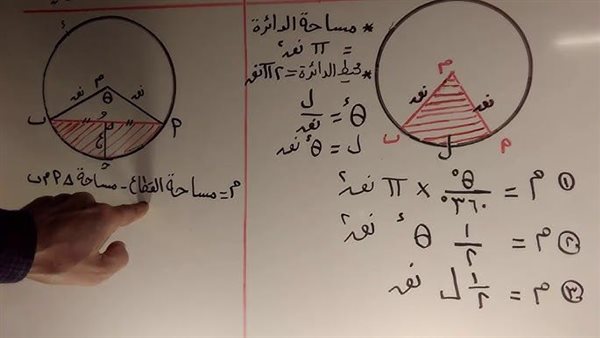 * مساحة الدائرة
= π نق²
* محيط الدائرة = ٢ π نق
θء = ل / نق
ل = θء نق
م
نق
نق
ب
ل
م
① م = θ° / ٣٦٠° × π نق²
② م = ١/٢ θء نق²
③ م = ١/٢ ل نق
م
نق
نق
θ
ب
م
ع
م = مساحة القطاع - مساحة Δ م م ب